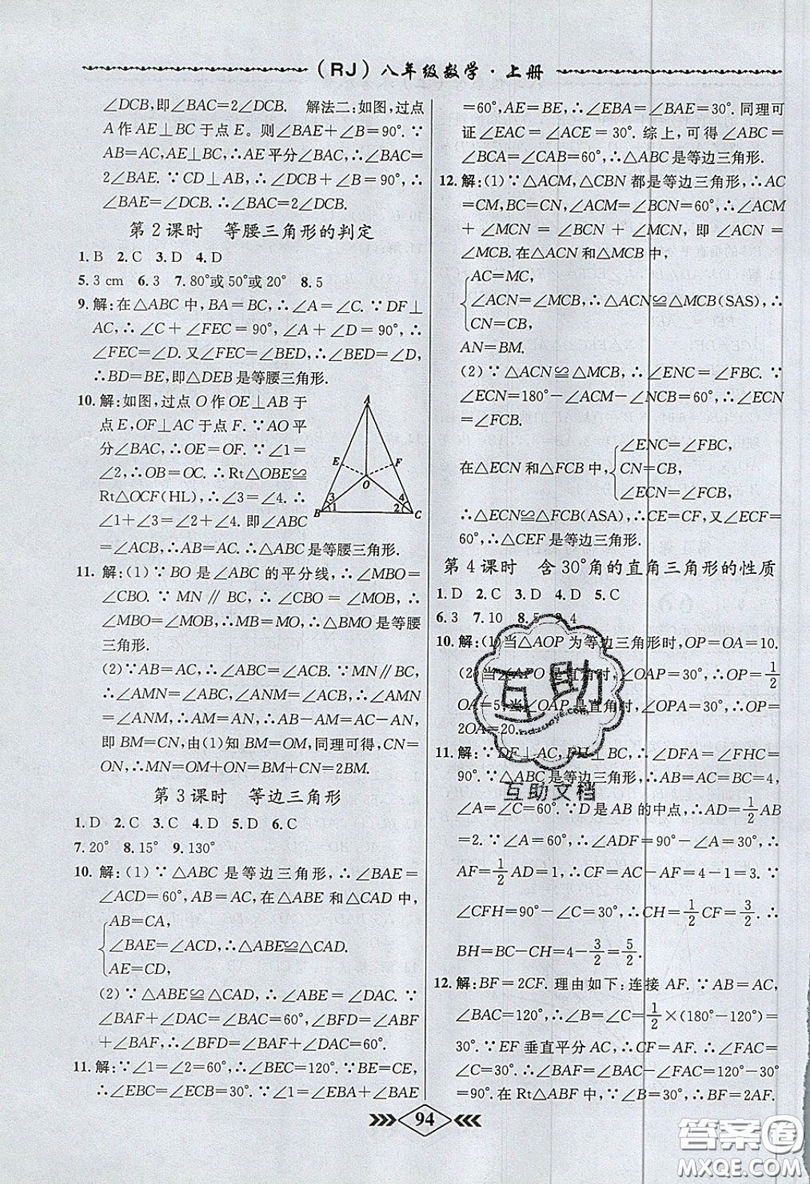 (RJ)八年级数学·上册
∠DCB,即∠BAC=2∠DCB. 解法二:如图,过点
A作AE⊥BC于点E。则∠BAE+∠B=90°. ∵
AB=AC,AE⊥BC,∴AE平分∠BAC,∴∠BAC=
2∠BAE. ∵CD⊥AB,∴∠DCB+∠B=90°,
∴∠BAE=∠DCB,∴∠BAC=2∠DCB.
第2课时 等腰三角形的判定
1.B 2.C 3.D 4.D
5.3 cm 6.3 7.80°或50°或20° 8.5
9.解:在△ABC中,BA=BC,∴∠A=∠C. ∵DF⊥
AC,∴∠C+∠FEC=90°,∠A+∠D=90°,
∴∠FEC=∠D. 又∵∠FEC=∠BED,∴∠BED=∠D,
∴BD=BE,即△DEB是等腰三角形.
10.解:如图,过点O作OE⊥AB于
点E,OF⊥AC于点F. ∵AO平
分∠BAC,∴OE=OF. ∵∠1=
∠2,∴OB=OC. ∴Rt△OBE≌
Rt△OCF(HL),∴∠3=∠4. ∴
∠1+∠3=∠2+∠4. 即∠ABC
=∠ACB,∴AB=AC,∴△ABC是等腰三角形.
A
E
F
O
3
1
4
2
B
C
11.解:(1)∵BO是∠ABC的平分线,∴∠MBO=
∠CBO. ∵MN∥BC,∴∠MOB=∠CBO,
∴∠MBO=∠MOB,∴MB=MO,∴△BMO是等腰
三角形.
(2)∵AB=AC,∴∠ABC=∠ACB. ∵MN∥BC,
∴∠AMN=∠ABC,∠ANM=∠ACB,∴∠AMN
=∠ANM,∴AM=AN,∴AB-AM=AC-AN,
即BM=CN,由(1)知BM=OM,同理可得,ON=
CN,∴OM=ON,∴MN=2BM.
第3课时 等边三角形
1.D 2.C 3.C 4.D 5.D 6.C
7.20° 8.15° 9.130°
10.解:(1)∵△ABC是等边三角形,∴∠BAE=
∠ACD=60°,在△ABE和△CAD中,
AB=CA,
∠BAE=∠ACD,∴△ABE≌△CAD.
AE=CD,
(2)∵△ABE≌△CAD,∴∠ABE=∠DAC. ∵
∠BAF+∠DAC=∠BAC=60°,∴∠BAF+∠ABF
=60°,∴∠BFD=∠BAF+∠ABF=60°.
11.解:∵∠1=∠2=60°,∴∠BEC=120°. ∵BE=CE,
∴∠EBC=∠ECB=30°. ∵∠1=∠EBA+∠BAE
=60°,AE=BE,∴∠EBA=∠BAE=30°. 同理可
证∠EAC=∠ACE=30°. 综上,可得∠ABC=
∠BCA=∠CAB=60°,∴△ABC是等边三角形.
12.解:(1)∵△ACM,△CBN都是等边三角形,∴AC
=CM,BC=CN,∠ACM=∠BCN=60°,∴∠ACM
+∠MCN=∠BCN+∠MCN,即∠ACN=
∠MCB. 在△ACN和△MCB中,
AC=MC,
∠ACN=∠MCB,∴△ACN≌△MCB(SAS),∴
CN=CB,
AN=BM.
(2)∵△ACN≌△MCB,∴∠ENC=∠FBC. ∵
∠ECN=180°-∠ACM-∠BCN=60°,∴∠ECN=
∠FCB.
∠ENC=∠FBC,
在△ECN和△FCB中,CN=CB,
∠ECN=∠FCB,
∴△ECN≌△FCB(ASA),∴CE=CF,又∠ECF=
60°,∴△CEF是等边三角形.
第4课时 含30°角的直角三角形的性质
1.D 2.C 3.D 4.D 5.C
6.3 7.10 8.5 9.4
10.解:(1)当△AOP为等边三角形时,OP=OA=10.
(2)当∠APO是直角时,∠OAP=30°,∴OP=1/2
OA=5,当∠OAP是直角时,∠OPA=30°,∴OP=
2OA=20.
11.解:∵DF⊥AC,FH⊥BC,∴∠DFA=∠FHC=
90°. ∵△ABC是等边三角形,∴AB=AC=BC=4,
∠A=∠C=60°. ∵D是AB的中点,∴AD=1/2AB
=2. ∵∠A=60°,∴∠ADF=90°-∠A=30°,∴
AF=1/2AD=1,∴CF=AC-AF=4-1=3. ∵
∠CFH=90°-∠C=30°,∴CH=1/2CF=3/2,∴
BH=BC-CH=4-3/2=5/2.
12.解:BF=2CF. 理由如下:连接AF. ∵AB=AC,
∠BAC=120°,∴∠B=∠C=1/2×(180°-120°)=
30°. ∵EF垂直平分AC,∴AF=CF,∴∠FAC=
∠C=30°,∴∠BAF=∠BAC-∠FAC=120°-30°
=90°. 在Rt△ABF中,∵∠B=30°,∴BF=2AF.
94
互助
互助文档
答案圈
MXQE.COM